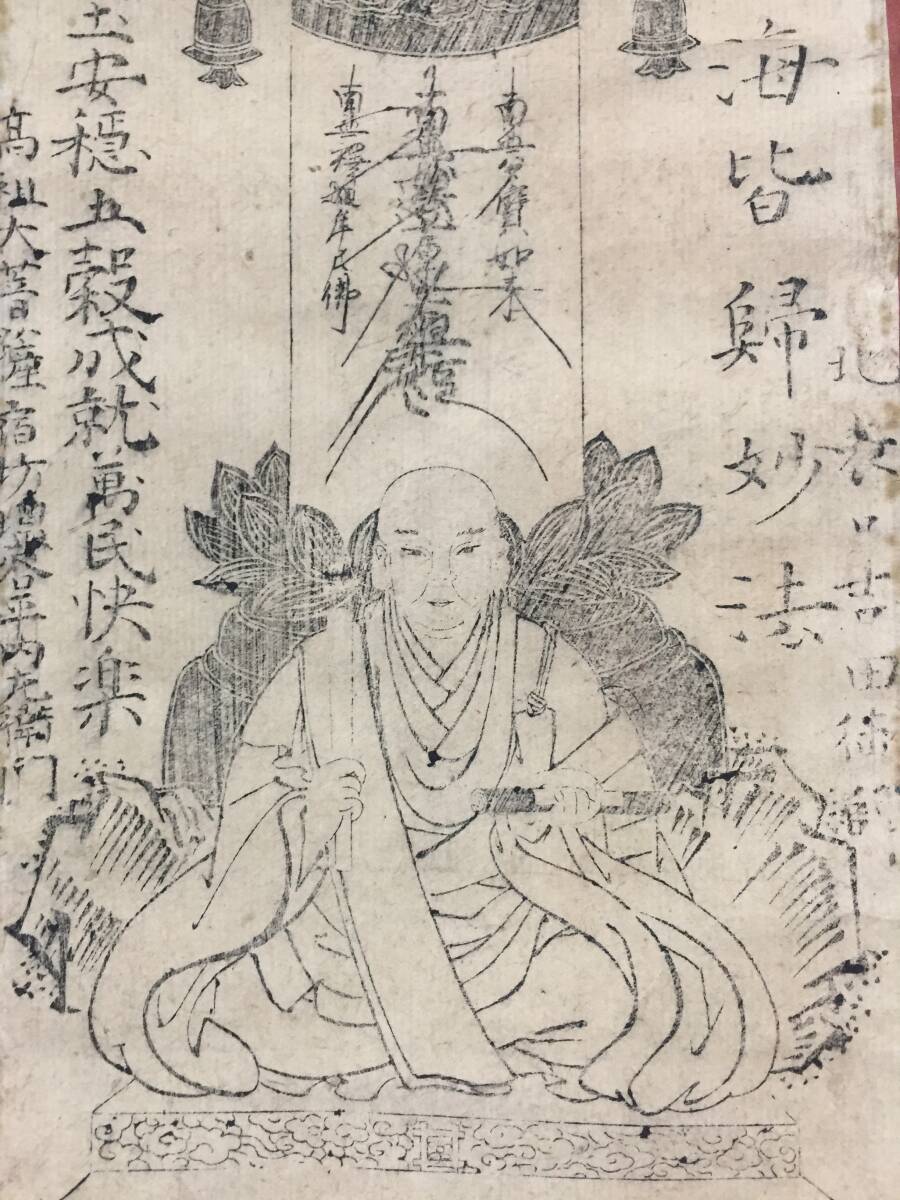 吉田
海皆歸妙法
南無多寶如来
南無妙法蓮華經
南無釋迦牟尼佛
土安穏五穀成就萬民快楽
高祖大菩薩宿坊平内左衛門